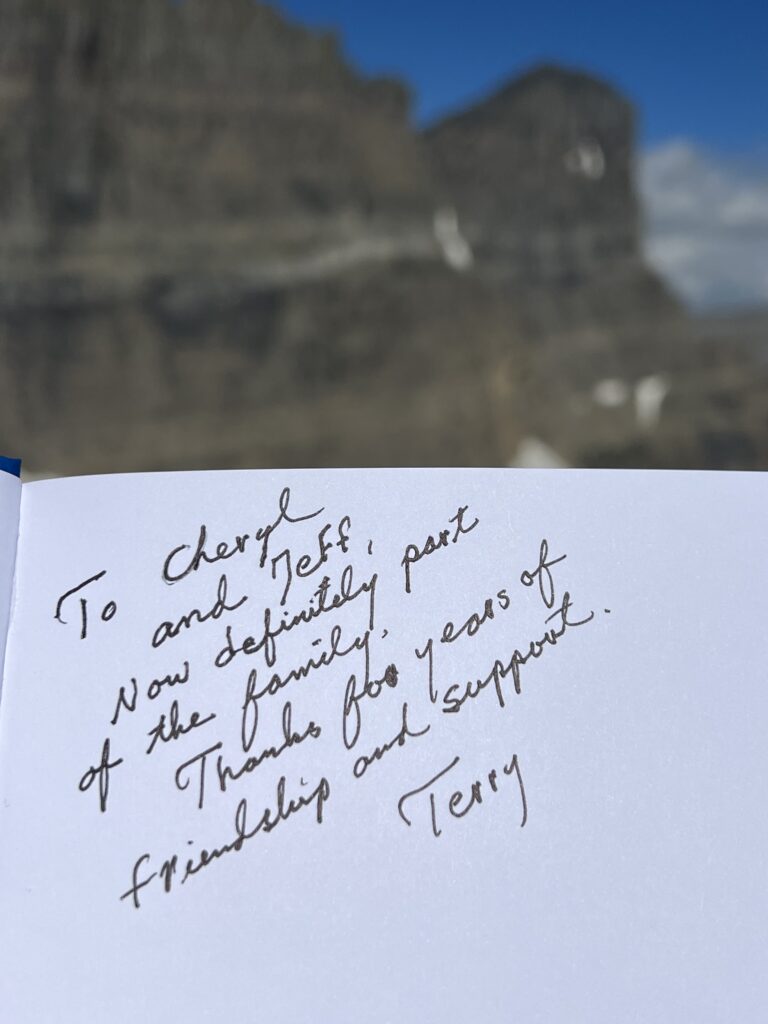 To Cheryl
and Jeff,
Now definitely part
of the family.
Thanks for years of
friendship and support.
Terry